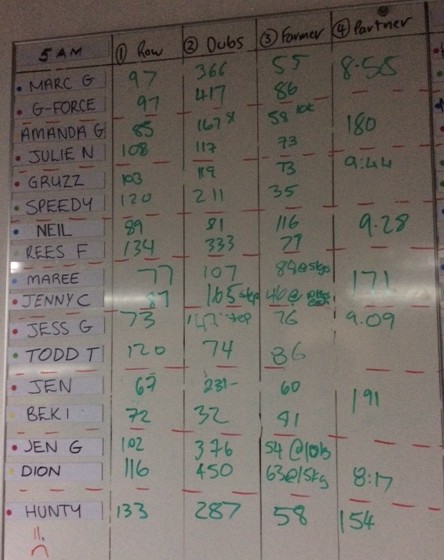 5 AM ① Row ② Dubs ③ Farmer ④ Partner
MARC G 97 366 55 8.55
G-FORCE 97 417 86
AMANDA G 85 58 180
JULIE N 108 117 73
GRUZZ 103 119 73 9:44
SPEEDY 120 211 35
NEIL 89 81 116 9.28
REES F 134 333 77
MAREE 77 107 171
JENNY C 87 165
JESS G 73 76 9.09
TODD T 120 74 86
JEN 67 231- 60 191
BEKI 72 32 41
JEN G 102 376 54 @10kg
DION 116 450 63@15kg 8:17
HUNTY 133 287 58 154